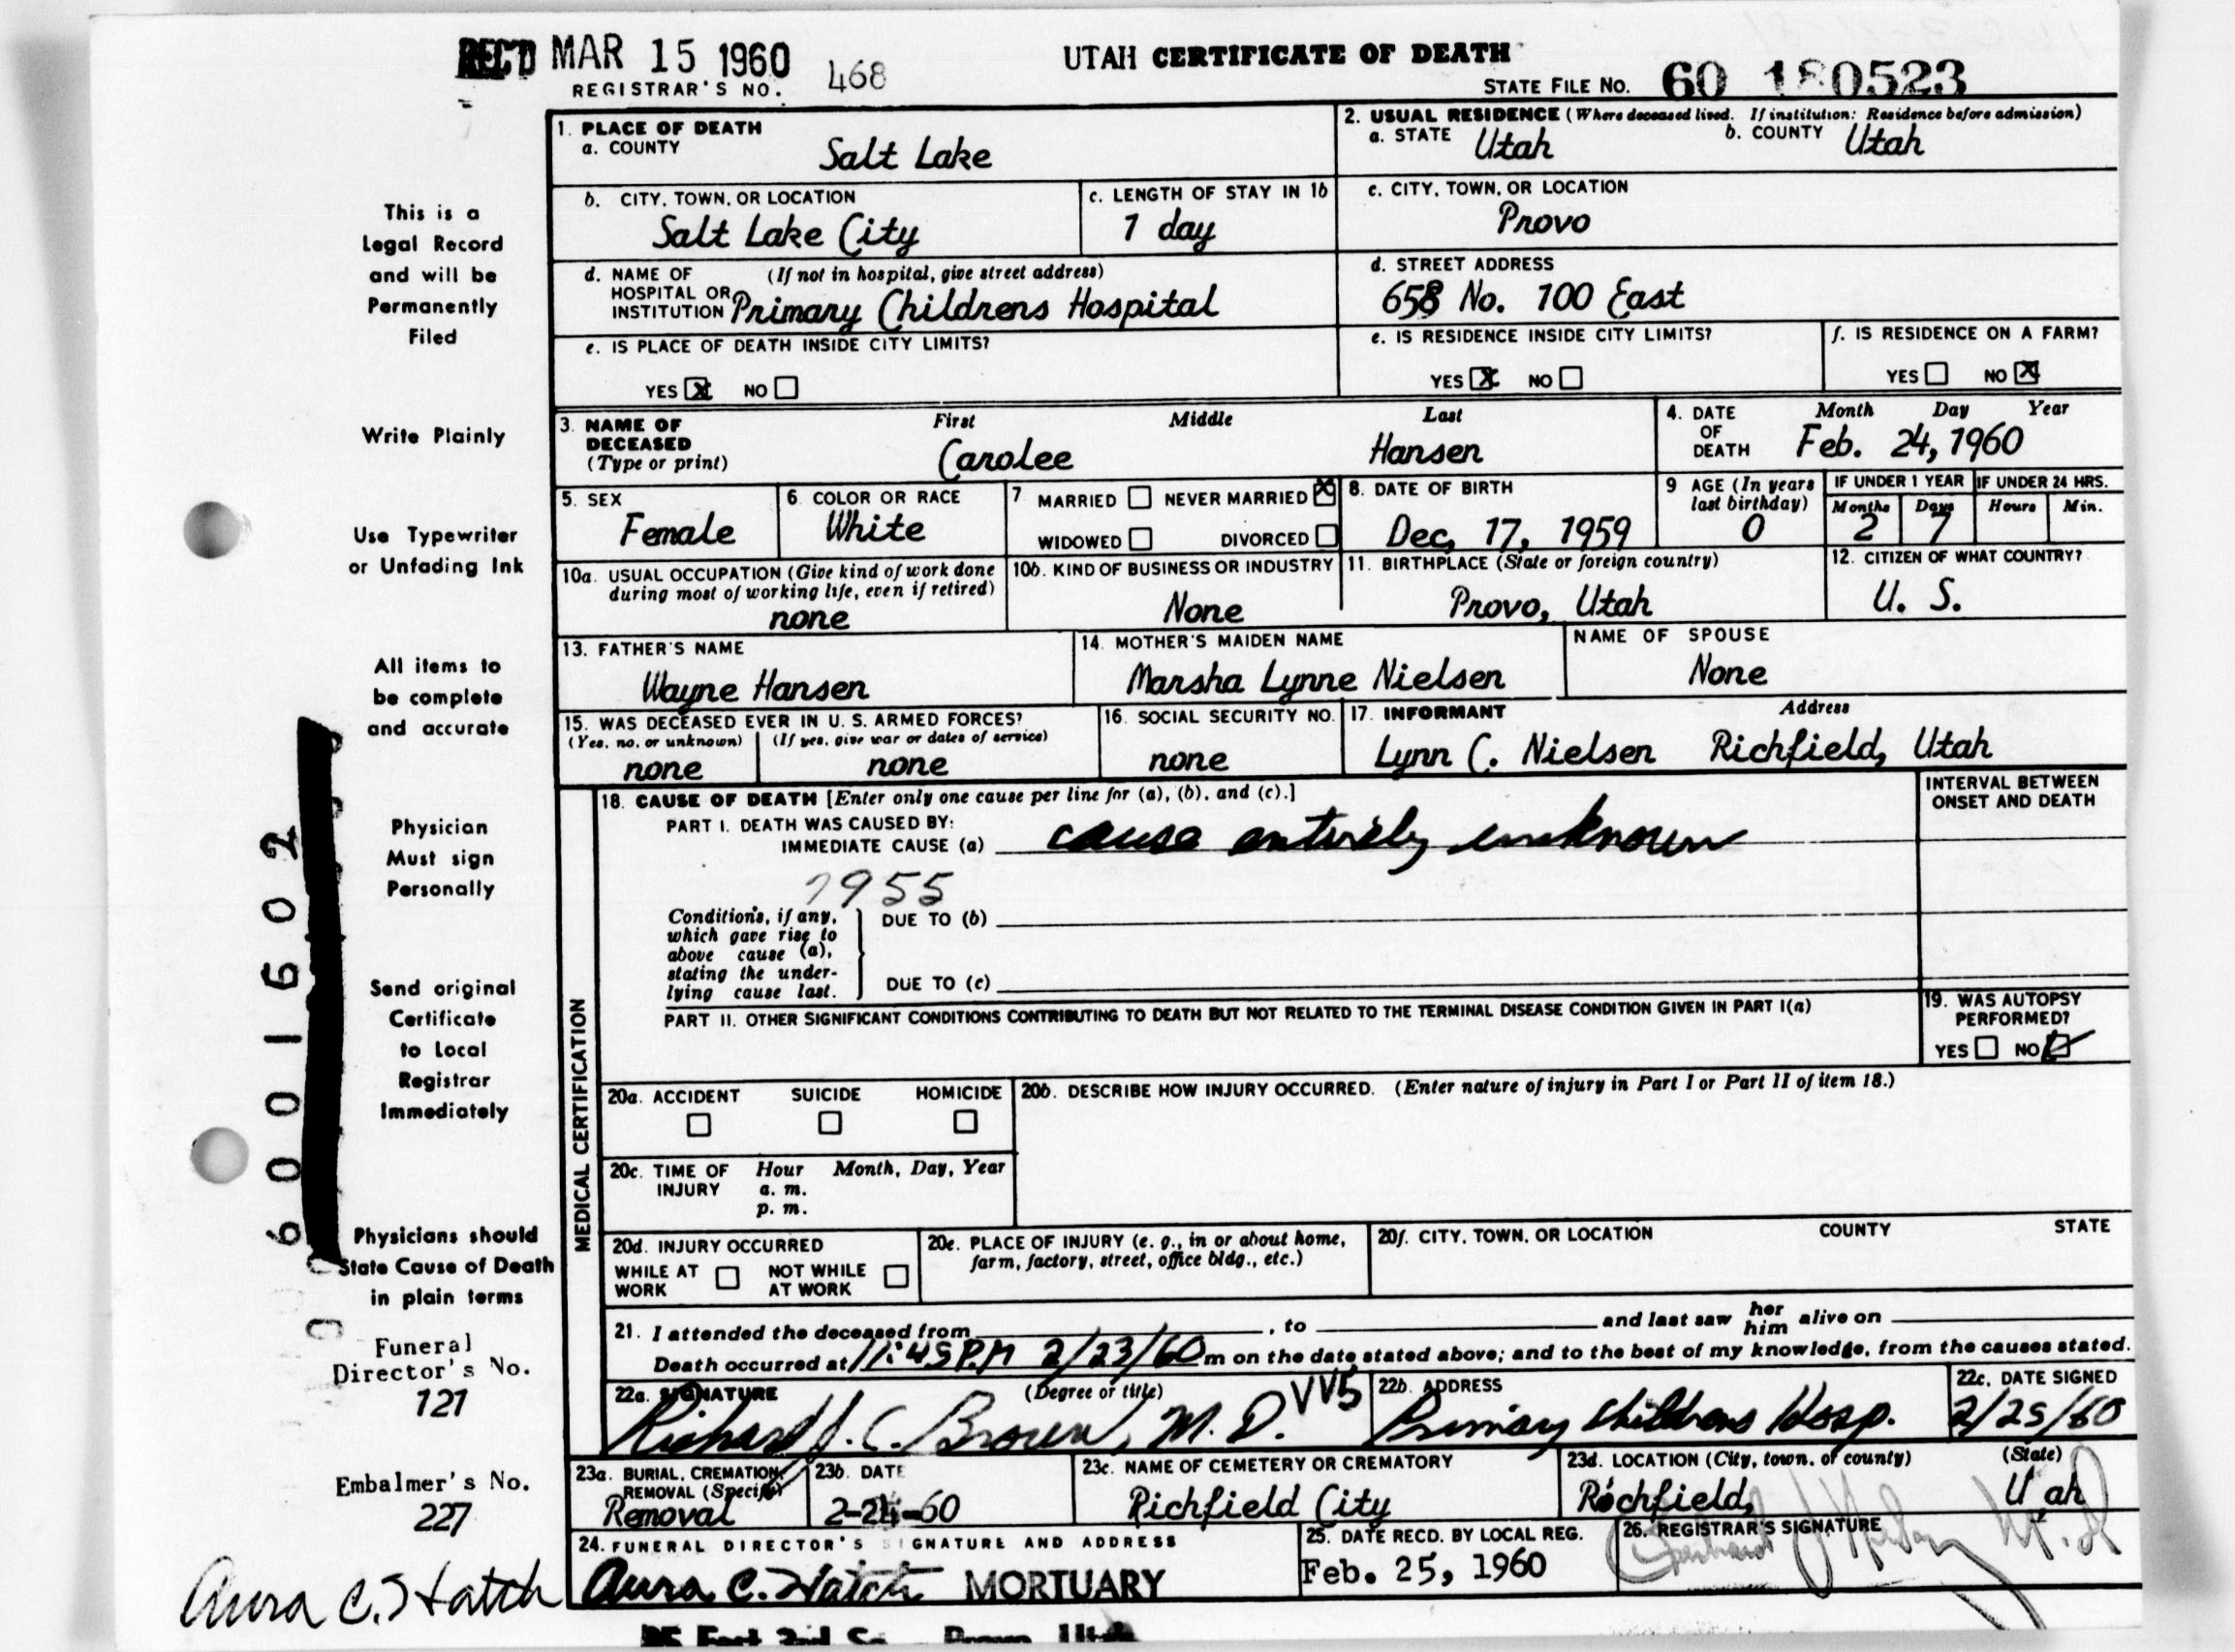 REC'D MAR 15 1960
REGISTRAR'S NO. 468
UTAH CERTIFICATE OF DEATH
STATE FILE No. 60 180523
1. PLACE OF DEATH
a. COUNTY
Salt Lake
2. USUAL RESIDENCE (Where deceased lived. If institution: Residence before admission)
a. STATE Utah b. COUNTY Utah
b. CITY, TOWN, OR LOCATION
Salt Lake City
c. LENGTH OF STAY IN 1b
1 day
c. CITY, TOWN, OR LOCATION
Provo
d. NAME OF (If not in hospital, give street address)
HOSPITAL OR
INSTITUTION Primary Childrens Hospital
d. STREET ADDRESS
658 No. 100 East
e. IS PLACE OF DEATH INSIDE CITY LIMITS?
YES X NO
e. IS RESIDENCE INSIDE CITY LIMITS?
YES X NO
f. IS RESIDENCE ON A FARM?
YES NO X
3. NAME OF
DECEASED
(Type or print)
First Middle Last
Carolee Hansen
4. DATE
OF
DEATH
Month Day Year
Feb. 24, 1960
5. SEX
Female
6. COLOR OR RACE
White
7 MARRIED NEVER MARRIED X
WIDOWED DIVORCED
8. DATE OF BIRTH
Dec, 17, 1959
9 AGE (In years
last birthday)
0
IF UNDER 1 YEAR
Months Days
2 7
IF UNDER 24 HRS.
Hours Min.
10a. USUAL OCCUPATION (Give kind of work done
during most of working life, even if retired)
none
10b. KIND OF BUSINESS OR INDUSTRY
None
11. BIRTHPLACE (State or foreign country)
Provo, Utah
12. CITIZEN OF WHAT COUNTRY?
U. S.
13. FATHER'S NAME
Wayne Hansen
14. MOTHER'S MAIDEN NAME
Marsha Lynne Nielsen
NAME OF SPOUSE
None
15. WAS DECEASED EVER IN U. S. ARMED FORCES?
(Yes, no, or unknown) (If yes, give war or dates of service)
none none
16. SOCIAL SECURITY NO.
none
17. INFORMANT Address
Lynn C. Nielsen Richfield, Utah
MEDICAL CERTIFICATION
18. CAUSE OF DEATH [Enter only one cause per line for (a), (b), and (c).]
PART I. DEATH WAS CAUSED BY:
IMMEDIATE CAUSE (a) cause entirely unknown
7955
Conditions, if any,
which gave rise to
above cause (a),
stating the under-
lying cause last.
DUE TO (b)
DUE TO (c)
INTERVAL BETWEEN
ONSET AND DEATH
PART II. OTHER SIGNIFICANT CONDITIONS CONTRIBUTING TO DEATH BUT NOT RELATED TO THE TERMINAL DISEASE CONDITION GIVEN IN PART I(a)
19. WAS AUTOPSY
PERFORMED?
YES NO ✓
20a. ACCIDENT SUICIDE HOMICIDE
20b. DESCRIBE HOW INJURY OCCURRED. (Enter nature of injury in Part I or Part II of item 18.)
20c. TIME OF Hour Month, Day, Year
INJURY a. m.
p. m.
20d. INJURY OCCURRED
WHILE AT NOT WHILE
WORK AT WORK
20e. PLACE OF INJURY (e. g., in or about home,
farm, factory, street, office bldg., etc.)
20f. CITY, TOWN, OR LOCATION COUNTY STATE
21. I attended the deceased from , to and last saw her him alive on
Death occurred at 11:45 P.M 2/23/60 m on the date stated above; and to the best of my knowledge, from the causes stated.
22a. SIGNATURE (Degree or title) VV5
Richard J. C. Brown, M. D.
22b. ADDRESS
Primary Childrens Hosp.
22c. DATE SIGNED
2/25/60
23a. BURIAL, CREMATION,
REMOVAL (Specify)
Removal
23b. DATE
2-24-60
23c. NAME OF CEMETERY OR CREMATORY
Richfield City
23d. LOCATION (City, town, or county) (State)
Richfield, Utah
24. FUNERAL DIRECTOR'S SIGNATURE AND ADDRESS
Aura C. Hatch MORTUARY
East 2nd So. Provo, Utah
25. DATE RECD. BY LOCAL REG.
Feb. 25, 1960
26. REGISTRAR'S SIGNATURE
M. D
This is a
Legal Record
and will be
Permanently
Filed
Write Plainly
Use Typewriter
or Unfading Ink
All items to
be complete
and accurate
Physician
Must sign
Personally
Send original
Certificate
to Local
Registrar
Immediately
Physicians should
State Cause of Death
in plain terms
Funeral
Director's No.
121
Embalmer's No.
227
Aura C. Hatch
6001602